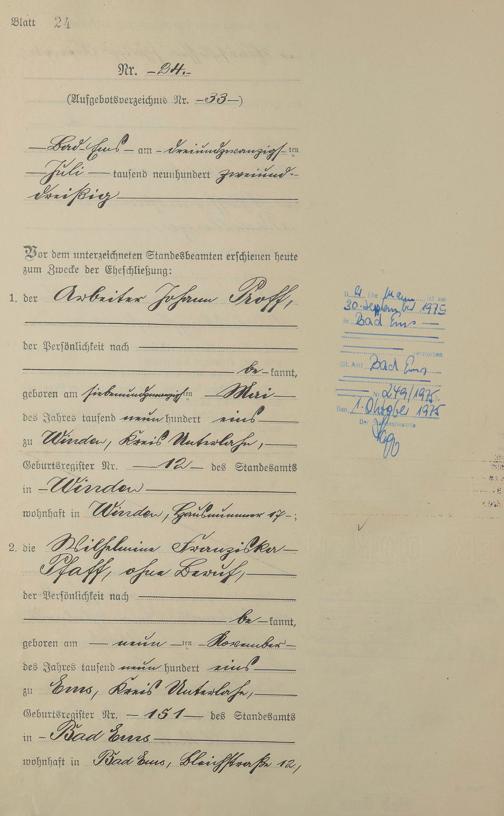 Blatt 24
Nr. -24.-
(Aufgebotsverzeichnis Nr. -33-)
-Bad-Ems- am -dreiundzwanzigs-ten
-Juli- tausend neunhundert zweiund-
dreißig
Vor dem unterzeichneten Standesbeamten erschienen heute
zum Zwecke der Eheschließung:
1. der Arbeiter Johann Proff,
der Persönlichkeit nach
be-kannt,
geboren am siebenundzwanzigsten Mai
des Jahres tausend neun hundert eins
zu Winden, Kreis Unterlahn,
Geburtsregister Nr. -12- des Standesamts
in -Winden
wohnhaft in Winden, Hausnummer 17-;
2. die Wilhelmine Franziska-
Pfaff, ohne Beruf,
der Persönlichkeit nach
be-kannt,
geboren am -neun-ten November-
des Jahres tausend neun hundert eins
zu Ems, Kreis Unterlahn,
Geburtsregister Nr. -151- des Standesamts
in -Bad Ems-
wohnhaft in Bad Ems, Bleichstraße 12,
am
30. September 1975
Bad Ems
Bad Ems
Nr. 249/1975
Den 1. Oktober 1975
Der Standesbeamte